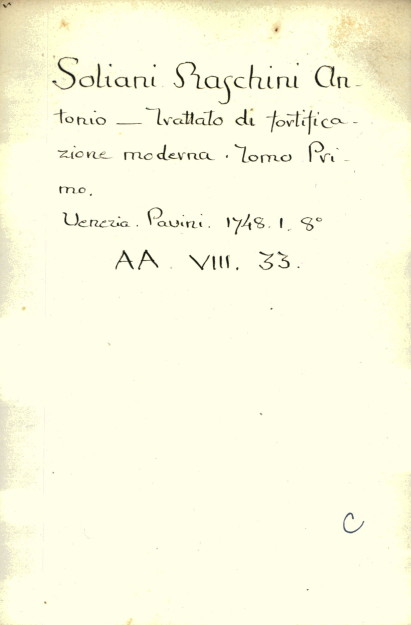 Soliani Raschini An-
tonio — Trattato di fortifica-
zione moderna. Tomo Pri-
mo.
Venezia. Pavini. 1748. 1. 8°
AA. VIII. 33.
C